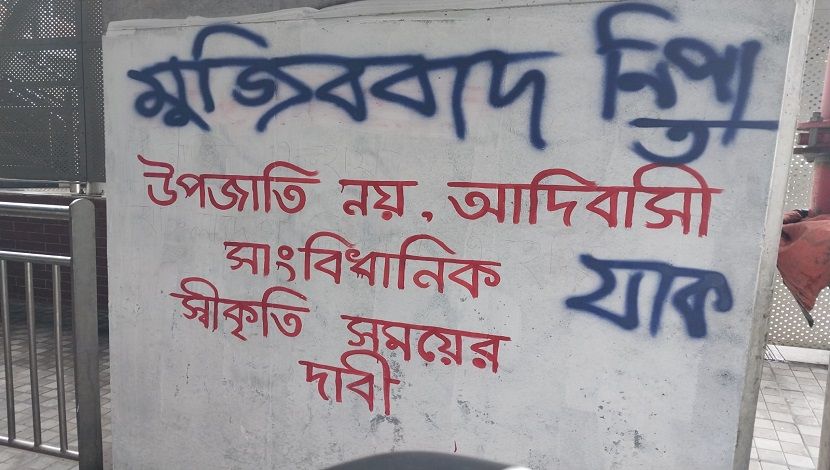 মুজিববাদ নিপাত
যাক
উপজাতি নয়, আদিবাসী
সাংবিধানিক
স্বীকৃতি সময়ের
দাবী